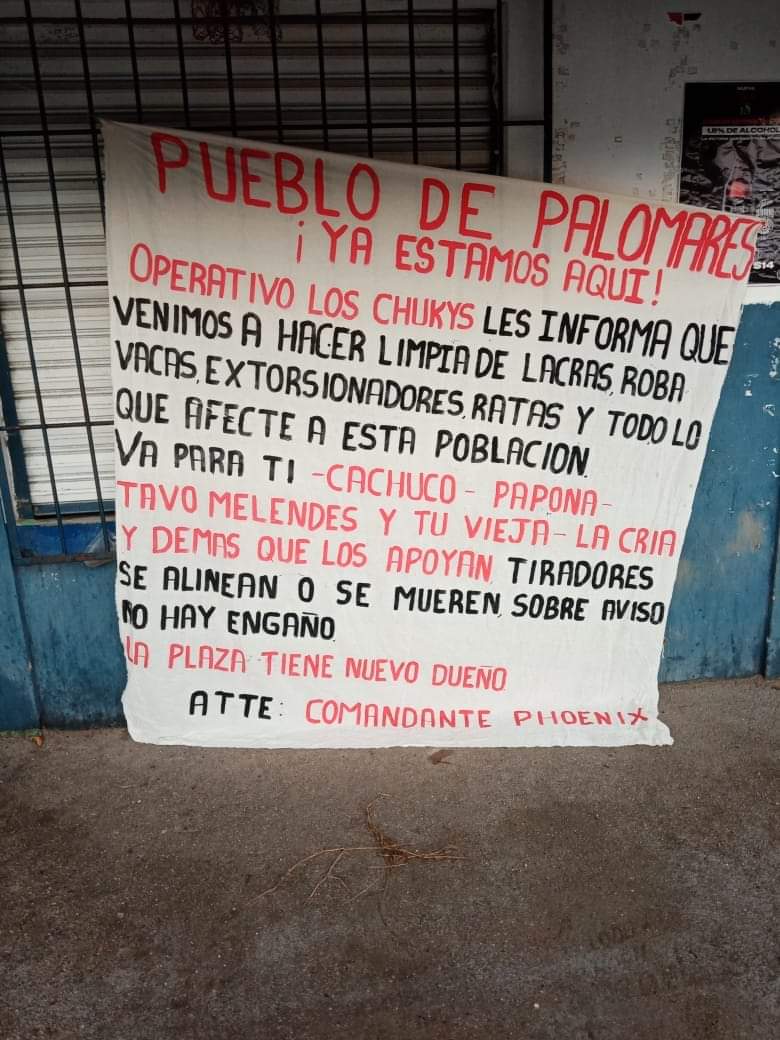 PUEBLO DE PALOMARES
¡YA ESTAMOS AQUI!
OPERATIVO LOS CHUKYS LES INFORMA QUE
VENIMOS A HACER LIMPIA DE LACRAS, ROBA
VACAS, EXTORSIONADORES, RATAS Y TODO LO
QUE AFECTE A ESTA POBLACION.
VA PARA TI - CACHUCO - PAPONA -
TAVO MELENDES Y TU VIEJA - LA CRIA
Y DEMAS QUE LOS APOYAN, TIRADORES
SE ALINEAN O SE MUEREN, SOBRE AVISO
NO HAY ENGAÑO.
LA PLAZA TIENE NUEVO DUEÑO
ATTE: COMANDANTE PHOENIX
DE ALCOHOL